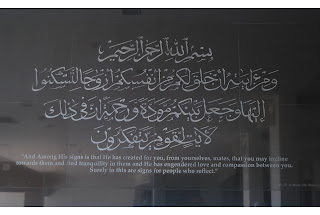 بسم الله الرحمن الرحيم
ومن آياته أن خلق لكم من أنفسكم أزواجا لتسكنوا
إليها وجعل بينكم مودة ورحمة إن في ذلك
لآيات لقوم يتفكرون
"And Among His signs is that He has created for you, from yourselves, mates, that you may incline
towards them and find tranquility in them and He has engendered love and compassion between you.
Surely in this are signs for people who reflect."